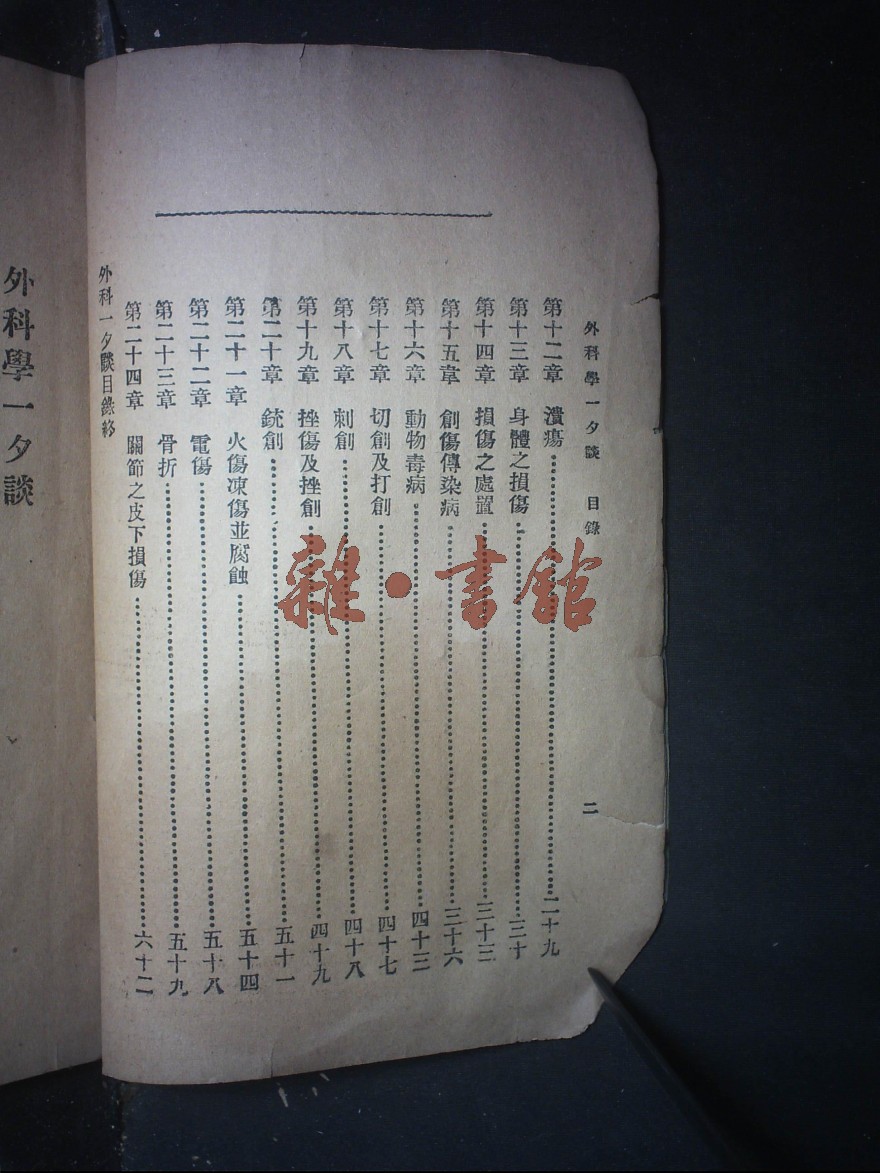 外科學一夕談 目錄 二
第十二章 潰瘍……二十九
第十三章 身體之損傷……三十
第十四章 損傷之處置……三十三
第十五章 創傷傳染病……三十六
第十六章 動物毒病……四十三
第十七章 切創及打創……四十七
第十八章 刺創……四十八
第十九章 挫傷及挫創……四十九
第二十章 銃創……五十一
第二十一章 火傷凍傷並腐蝕……五十四
第二十二章 電傷……五十八
第二十三章 骨折……五十九
第二十四章 關節之皮下損傷……六十二
外科一夕談目錄終
外科學一夕談
雜·書館